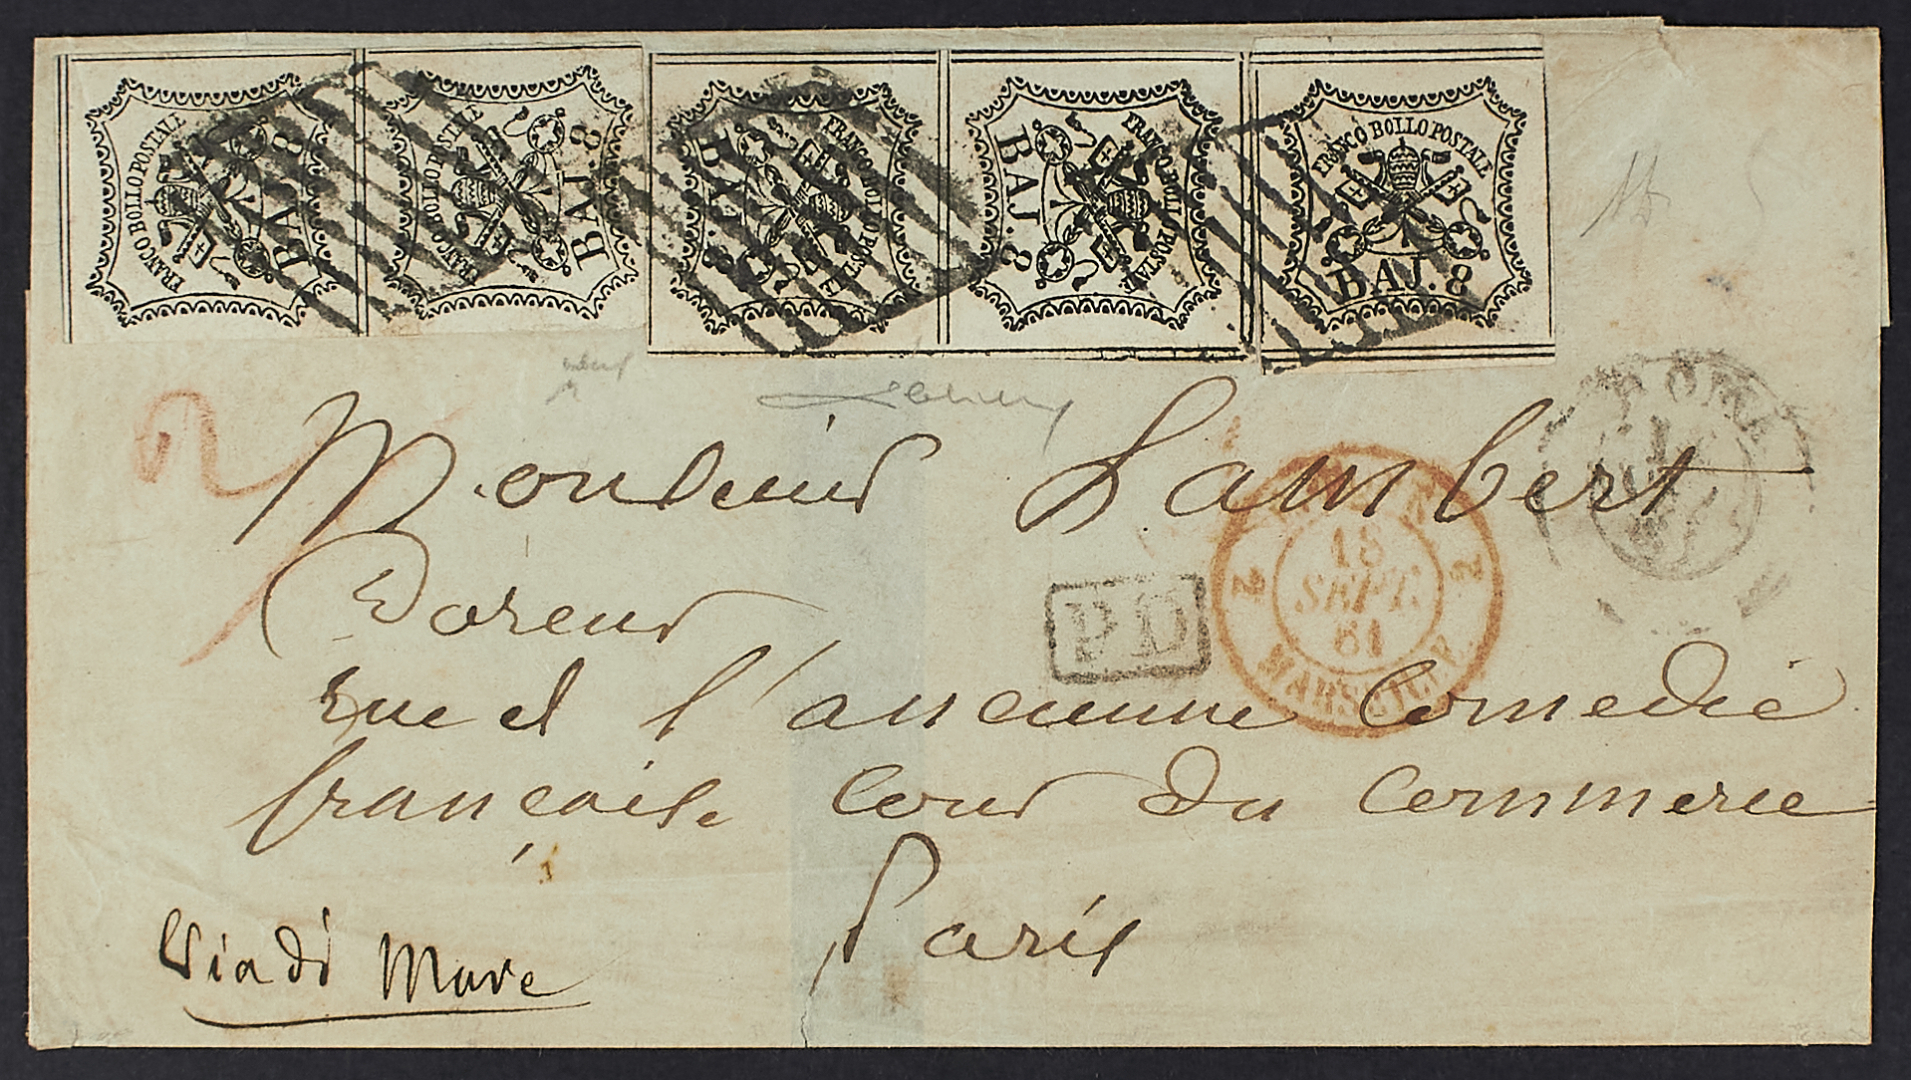 FRANCO BOLLO POSTALE
BAJ. 8
FRANCO BOLLO POSTALE
BAJ. 8
FRANCO BOLLO POSTALE
BAJ. 8
FRANCO BOLLO POSTALE
BAJ. 8
FRANCO BOLLO POSTALE
BAJ. 8
ROMA
2
Monsieur Lambert
Doreur
18
SEPT.
61
2 2
MARSEILLE
P.D
rue de l'ancienne Comedie
française Cour du Commerce
Paris
Via di Mare